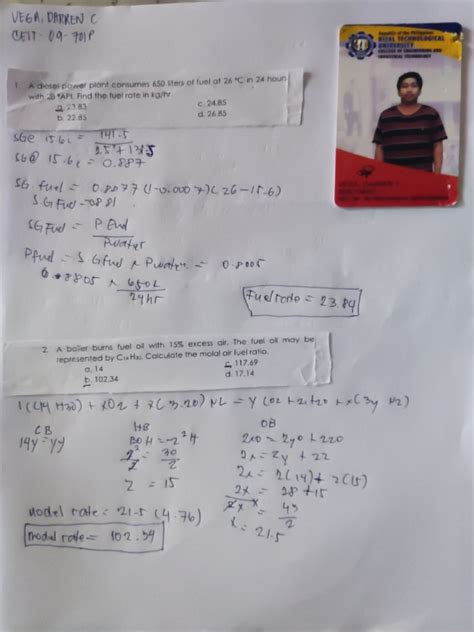 VEGA, DARREN C
CEIT-09-701P
Republic of the Philippines
RIZAL TECHNOLOGICAL UNIVERSITY
COLLEGE OF ENGINEERING AND INDUSTRIAL TECHNOLOGY
1. A diesel power plant consumes 650 liters of fuel at 26 °C in 24 hours
with 28 °API. Find the fuel rate in kg/hr
a. 23.85 c. 24.85
b. 22.85 d. 26.85
SG@ 15.6c = 141.5
SG@ 15.6c = 0.887
SG fuel = 0.8877 (1-0.0007)(26-15.6)
SG Fuel = 0881
SG Fuel = P Fuel
Pwater
Pfuel = SG fuel x Pwater = 0.8805
0.8805 x 650L
24hr
Fuel rate = 23.84
2. A boiler burns fuel oil with 15% excess air. The fuel oil may be
represented by C14H30. Calculate the molal air fuel ratio.
a. 14 c. 117.69
b. 102.34 d. 17.14
1(C14 H30) + xO2 + x(3.76) N2 = y CO2 + zH2O + x(3.76 N2)
CB HB OB
30H = z2H 2xO = 2yO + zzO
30 2x = 2y + zz
2
z = 15 2x = 28 + 15
43
2
x = 21.5
Modal rate = 21.5 (4.76)
modal rate = 102.34